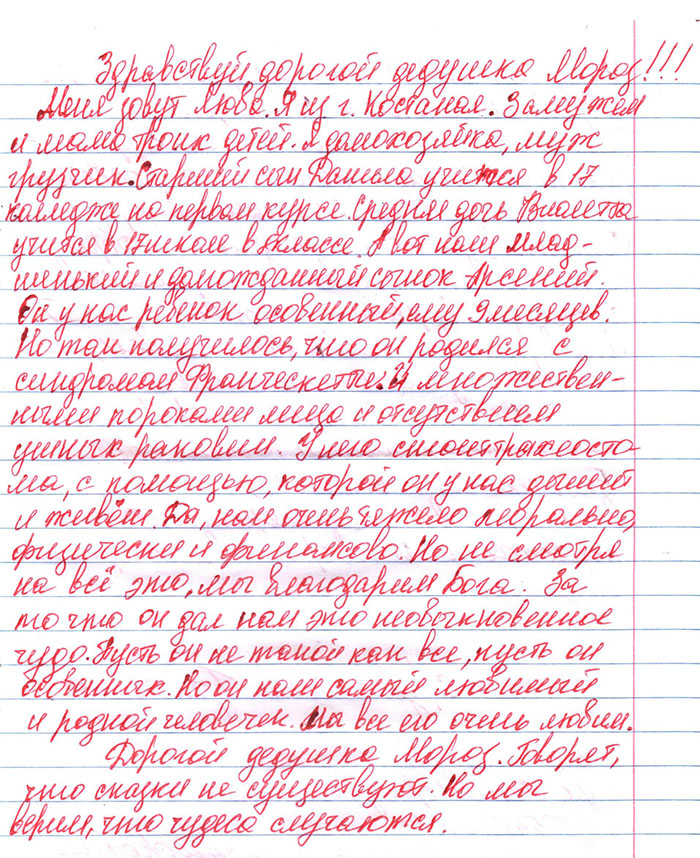 Здравствуй, дорогой дедушка Мороз!!!
Меня зовут Люба. Я из г. Костаная. Замужем
и мама троих детей. Я домохозяйка, муж
грузчик. Старший сын Данила учится в 17
колледже на первом курсе. Средняя дочь Виолетта
учится в 17 школе в 8 классе. А вот наш млад-
шенький и долгожданный сынок Арсений.
Он у нас ребёнок особенный, ему 9 месяцев.
Но так получилось, что он родился с
синдромом Франческетти. И множествен-
ными пороками лица и отсутствием
ушных раковин. У него стоит трахеосто
ма, с помощью, которой он у нас дышит
и живёт. Да, нам очень тяжело морально,
физически и финансово. Но не смотря
на всё это, мы благодарим Бога. За
то что он дал нам это необыкновенное
чудо. Пусть он не такой как все, пусть он
особенный. Но он наш самый любимый
и родной человечек. Мы все его очень любим.
Дорогой дедушка Мороз. Говорят,
что сказки не существуют. Но мы
верим, что чудеса случаются.